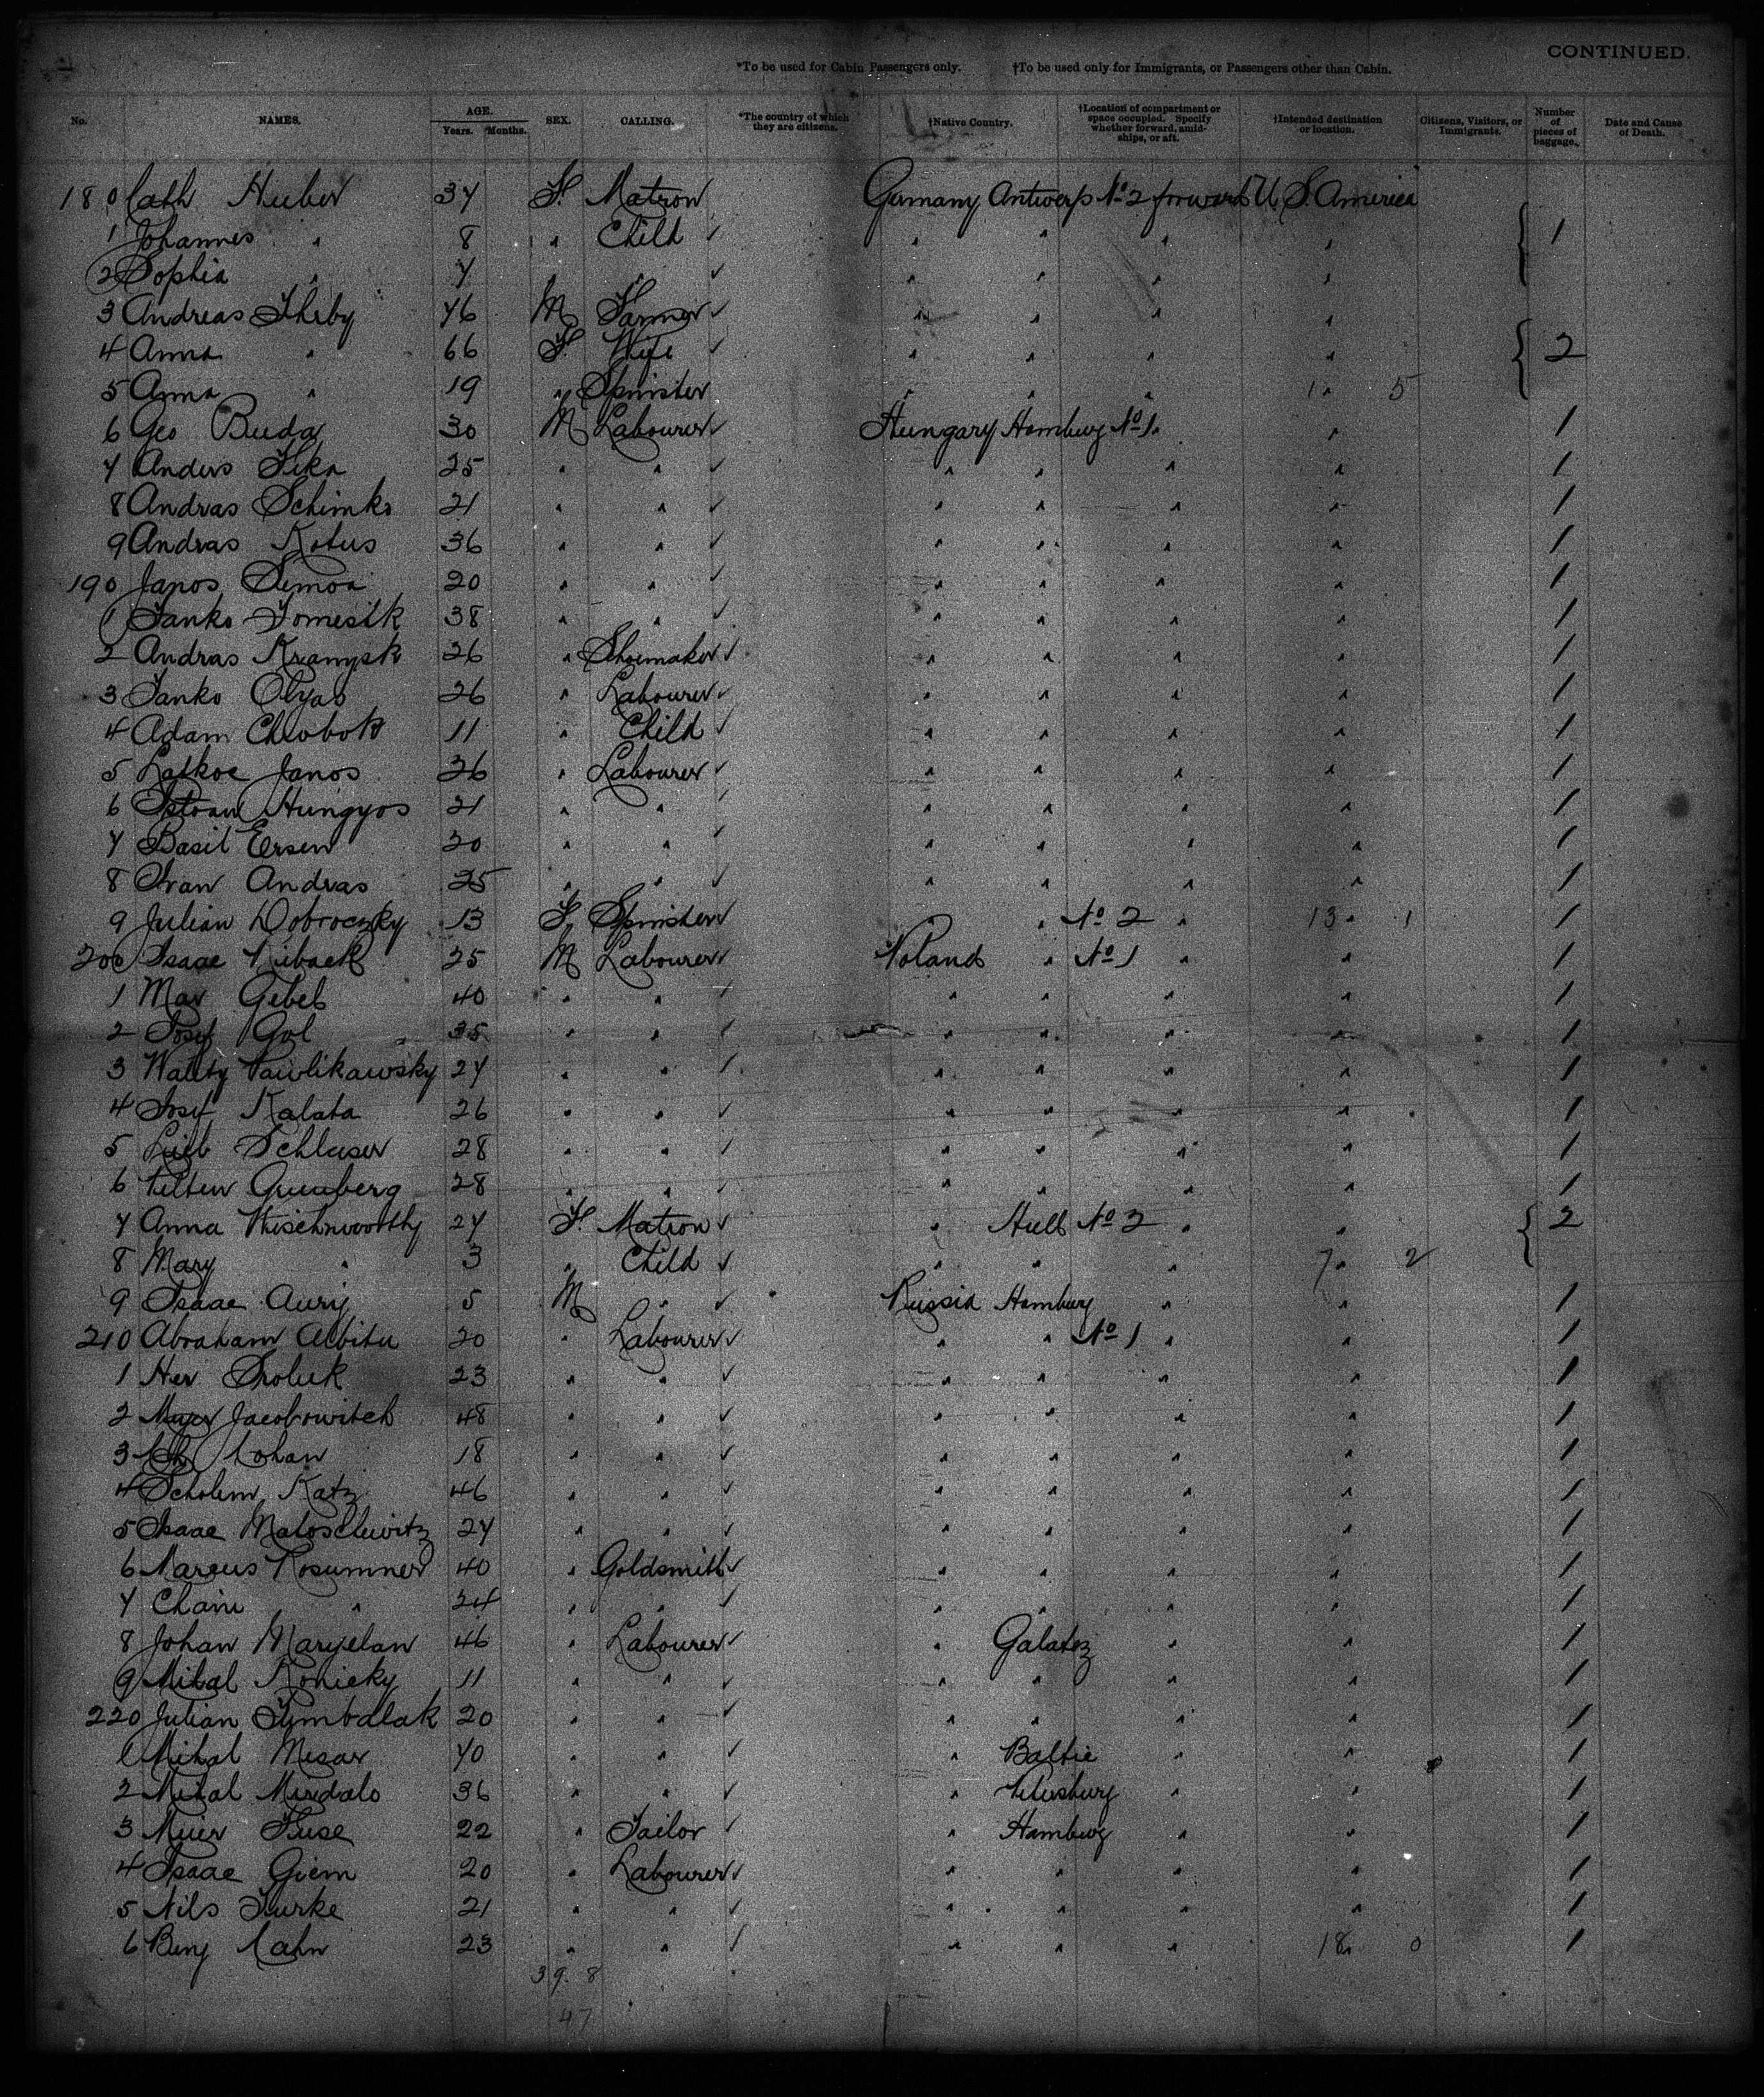 CONTINUED.
*To be used for Cabin Passengers only. †To be used only for Immigrants, or Passengers other than Cabin.
No. NAMES. AGE. Years. Months. SEX. CALLING. *The country of which they are citizens. †Native Country. †Location of compartment or space occupied. Specify whether forward, amidships, or aft. †Intended destination or location. Citizens, Visitors, or Immigrants. Number of pieces of baggage. Date and Cause of Death.
180 Cath Huber 34 F. Matron Germany Antwerp No 2 forward U.S. America
1 Johannes " 8 " Child ✓ " " " " 1
2 Sophia " 7 " ✓ " " " "
3 Andreas Theby 76 M Farmer ✓ " " " "
4 Anna " 66 F. Wife ✓ " " " " 2
5 Anna " 19 " Spinster " " " " 1 5
6 Geo Buda 30 M Labourer ✓ Hungary Hamburg No 1 " " 1
7 Anders Fika 25 " " ✓ " " " " 1
8 Andras Schimko 21 " " ✓ " " " " 1
9 Andras Kotus 36 " " ✓ " " " " 1
190 Janos Simon 20 " " ✓ " " " " 1
1 Janko Tomesik 38 " " ✓ " " " " 1
2 Andras 26 " Shoemaker ✓ " " " " 1
3 Janko Olyas 26 " Labourer ✓ " " " " 1
4 Adam Chlobok 11 " Child ✓ " " " " 1
5 Janos 36 " Labourer ✓ " " " " 1
6 Istvan Hungyos 21 " " ✓ " " " " 1
7 Basil Ersen 20 " " ✓ " " " " 1
8 Ivan Andras 25 " " ✓ " " " " 1
9 Julian Dobroczky 13 F. Spinster ✓ " " No 2 " 13 1 1
200 Isaac 25 M Labourer ✓ Poland " No 1 " " 1
1 Max Gebel 40 " " ✓ " " " " 1
2 Josef Gol 35 " " ✓ " " " " 1
3 Pawlikawsky 27 " " ✓ " " " " 1
4 Josef Kalata 26 " " ✓ " " " " 1
5 Leib Schleser 28 " " ✓ " " " " 1
6 28 " " ✓ " " " " 1
7 Anna 27 F. Matron ✓ " Hull No 2 " " 2
8 Mary " 3 " Child ✓ " " " 7 2
9 Isaac Aury 5 M " ✓ Russia Hamburg " " 1
210 Abraham 20 " Labourer ✓ " " No 1 " " 1
1 23 " " ✓ " " " " 1
2 Jacobowitch 48 " " ✓ " " " " 1
3 18 " " ✓ " " " " 1
4 Scholem Katz 46 " " ✓ " " " " 1
5 Isaac 27 " " ✓ " " " " 1
6 Marcus Rosumner 40 " Goldsmith ✓ " " " " 1
7 Chaim " 24 " " ✓ " " " " 1
8 Johan 46 " Labourer ✓ " Galatz " " 1
9 Mihal Konicky 11 " " ✓ " " " " 1
220 Julian Symbalak 20 " " ✓ " " " " 1
1 Mihal Mesar 40 " " ✓ " Baltic " " 1
2 Mihal 36 " " ✓ " Petersburg " " 1
3 Meier Fuse 22 " Tailor ✓ " Hamburg " " 1
4 Isaac Giem 20 " Labourer ✓ " " " " 1
5 Nils Furke 21 " " ✓ " " " " 1
6 Benj Cahn 23 " " ✓ " " " 18 0 1
39. 8
47